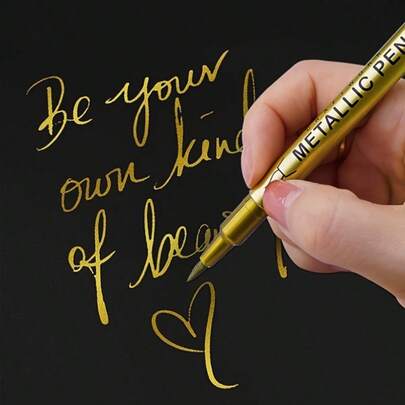 Be your
own kind
of
METALLIC PEN